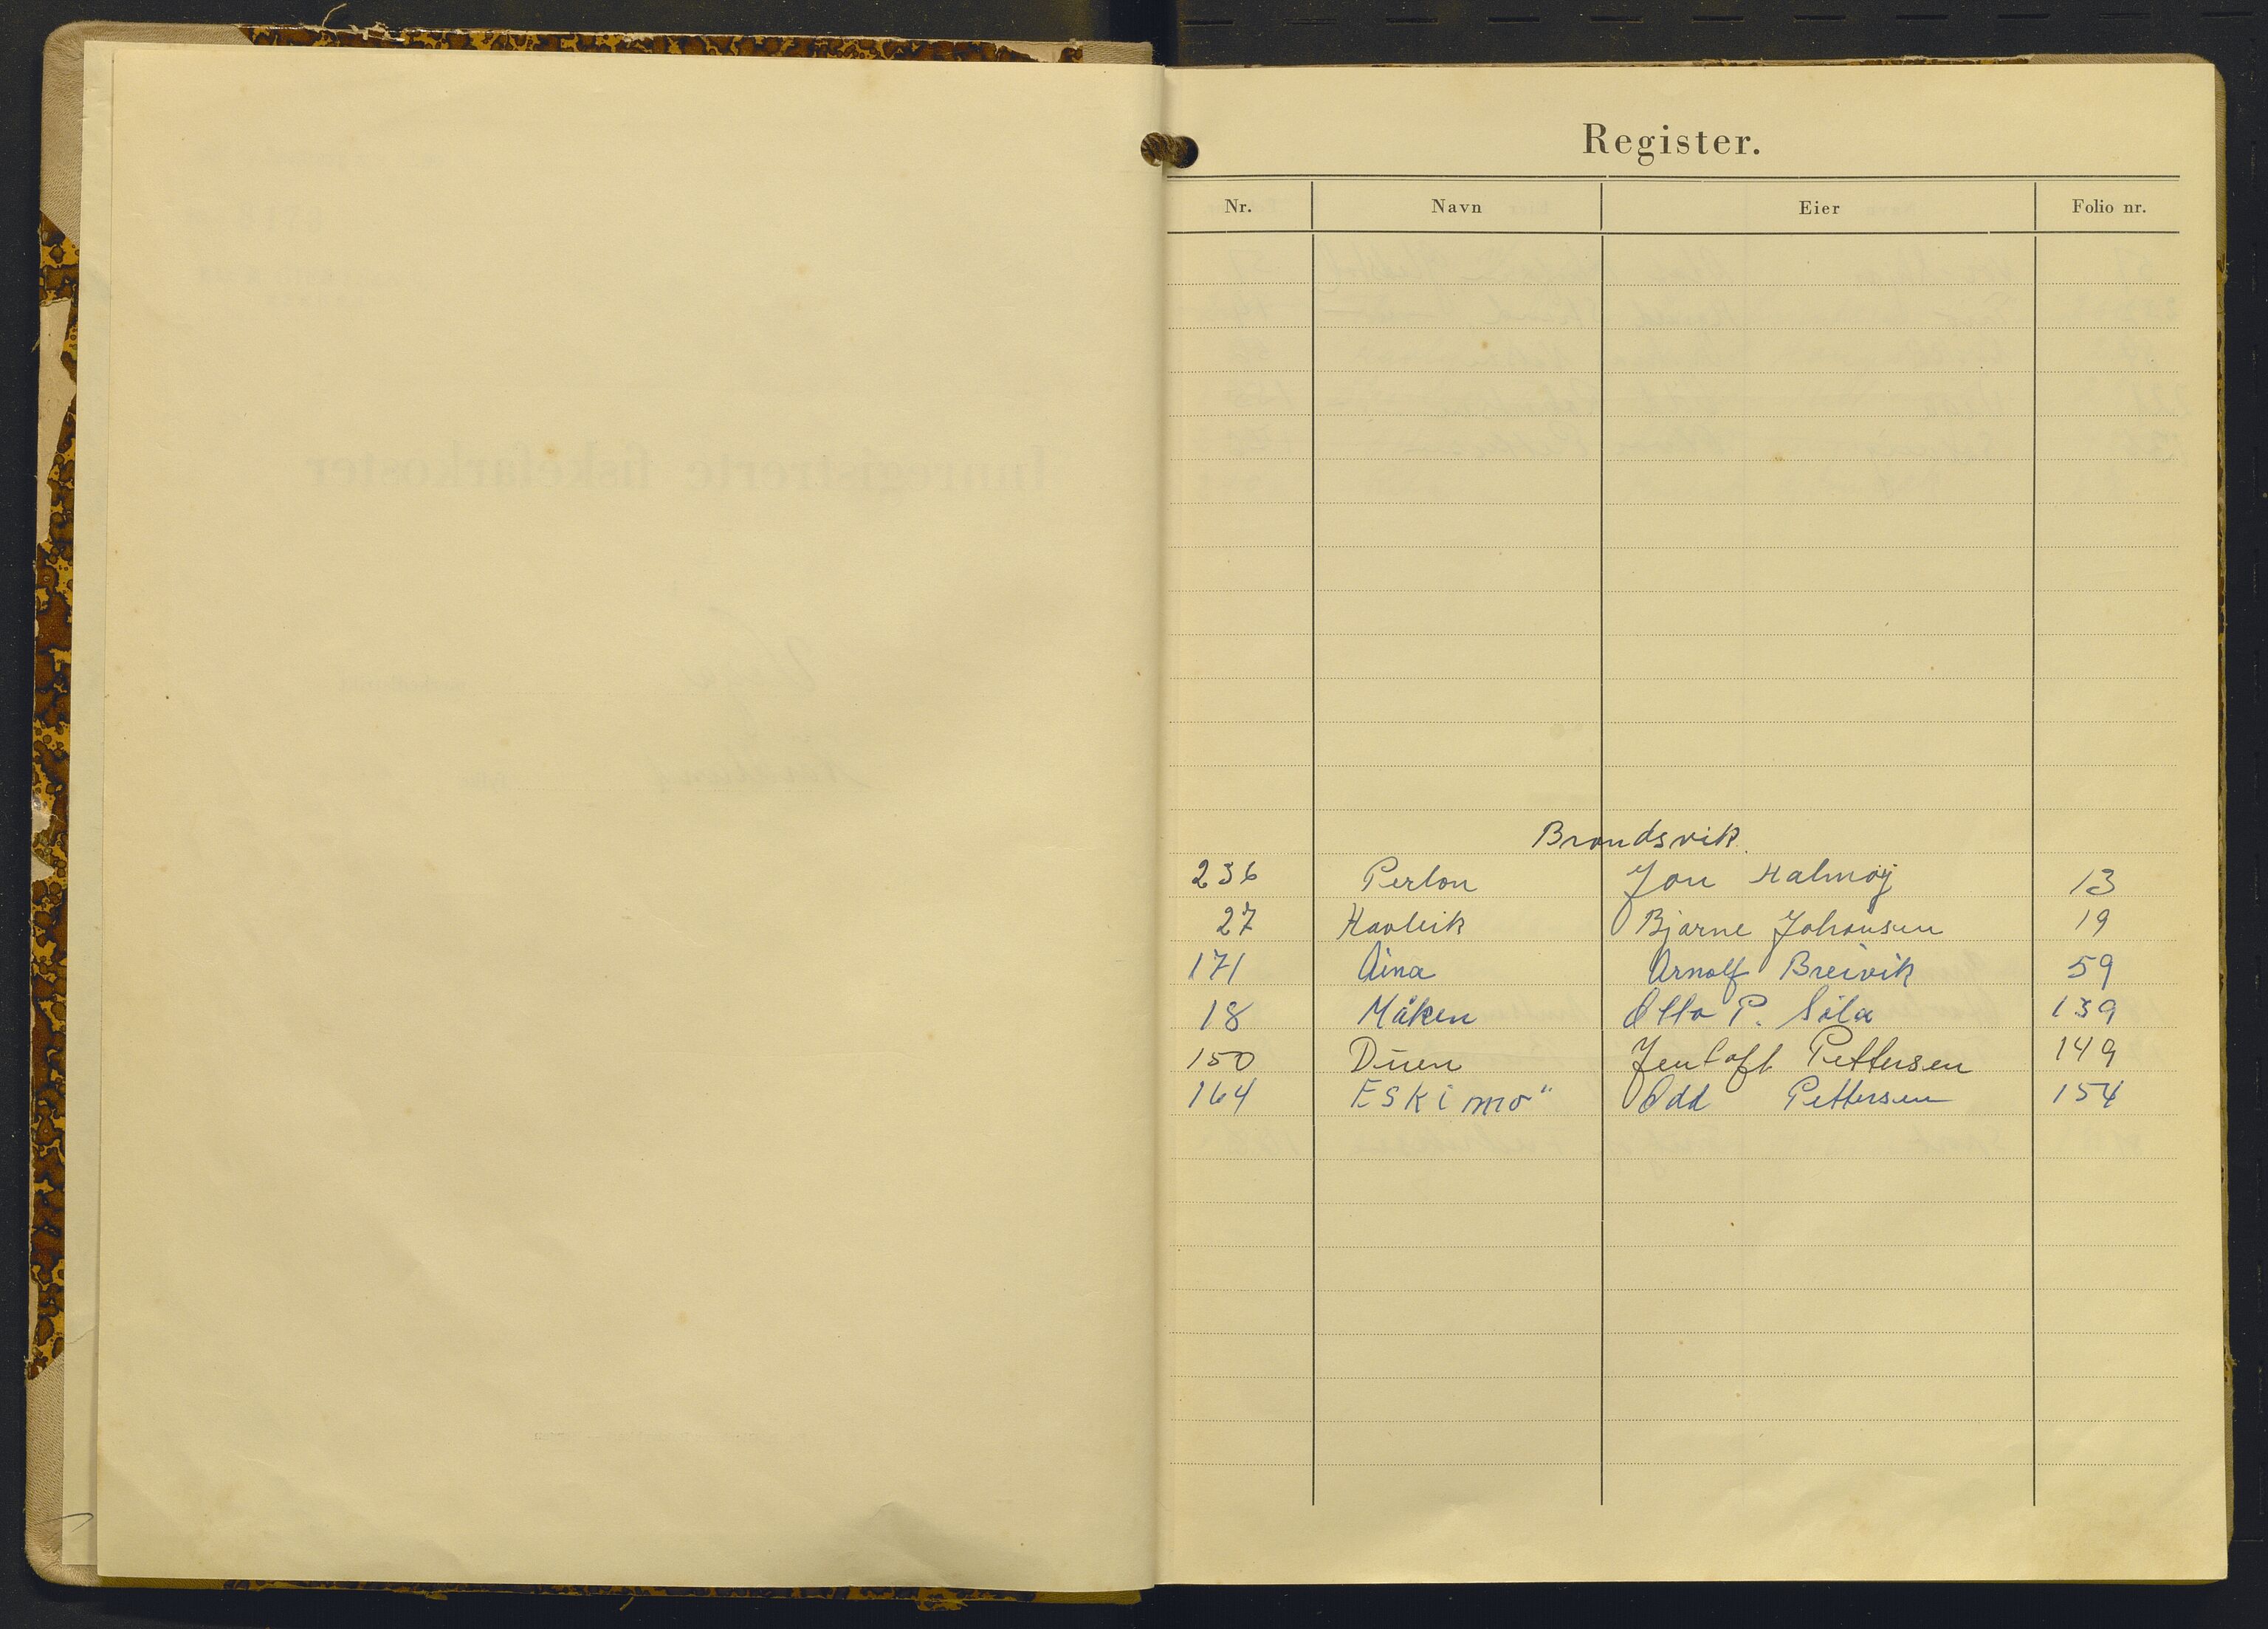 Register.
Nr. Navn Eier Folio nr.
Brandsvik.
236 Perlon Jon Halmøy 13
27 Havleik Bjarne Johansen 19
171 Aina Arnolf Breivik 59
18 Måken Otto P. Sila 139
150 Duen Jentoft Pettersen 149
164 Eskimo" Odd Pettersen 154